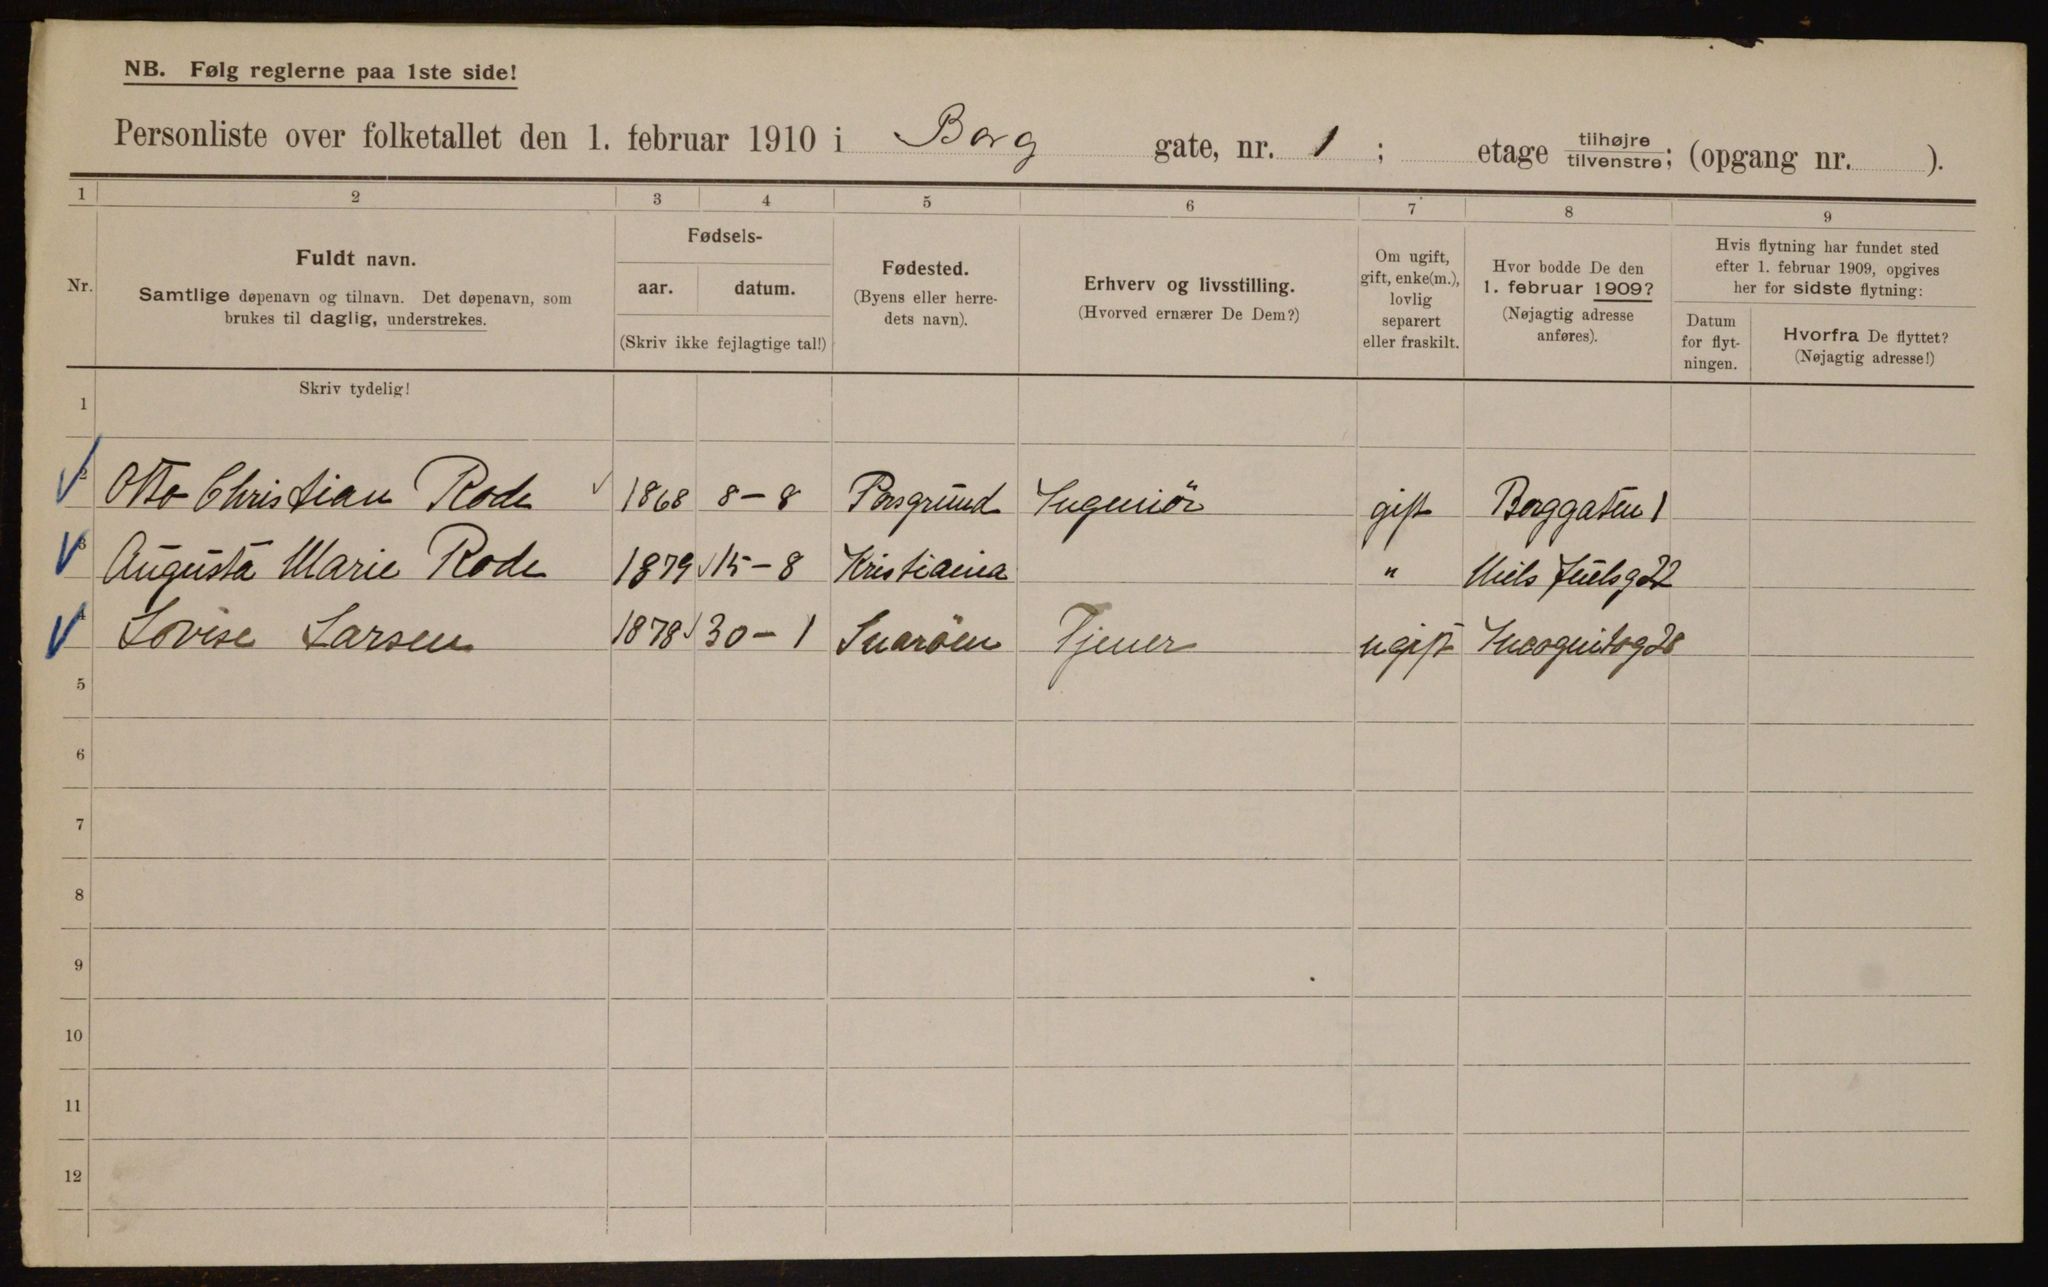 NB. Følg reglerne paa 1ste side!
Personliste over folketallet den 1. februar 1910 i Borg gate, nr. 1; etage tilhøjre/tilvenstre; (opgang nr. ).
1 2 3 4 5 6 7 8 9
Nr.
Fuldt navn.
Samtlige døpenavn og tilnavn. Det døpenavn, som
brukes til daglig, understrekes.
Skriv tydelig!
Fødsels-
aar. datum.
(Skriv ikke fejlagtige tal!)
Fødested.
(Byens eller herre-
dets navn).
Erhverv og livsstilling.
(Hvorved ernærer De Dem?)
Om ugift,
gift, enke(m.),
lovlig
separert
eller fraskilt.
Hvor bodde De den
1. februar 1909?
(Nøjagtig adresse
anføres).
Hvis flytning har fundet sted
efter 1. februar 1909, opgives
her for sidste flytning:
Datum
for flyt-
ningen.
Hvorfra De flyttet?
(Nøjagtig adresse!)
1
2 Otto Christian Rode 1868 8-8 Porsgrund Ingeniör gift Borggaten 1
3 Augusta Marie Rode 1879 15-8 Kristiania " Niels Juelsg 22
4 Lovise Larsen 1878 30-1 Snaröen Tjener ugift Incognitog 28
5
6
7
8
9
10
11
12